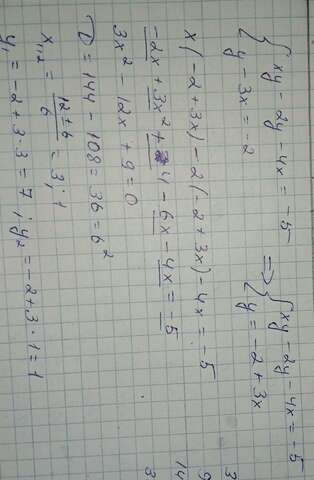 {xy - 2y - 4x = -5 => {xy - 2y - 4x = -5
y - 3x = -2 y = -2 + 3x
x(-2 + 3x) - 2(-2 + 3x) - 4x = -5
-2x + 3x² + 4 - 6x - 4x = -5
3x² - 12x + 9 = 0
D = 144 - 108 = 36 = 6²
x₁,₂ = (12 ± 6)/6 = 3; 1
y₁ = -2 + 3·3 = 7; y₂ = -2 + 3·1 = 1